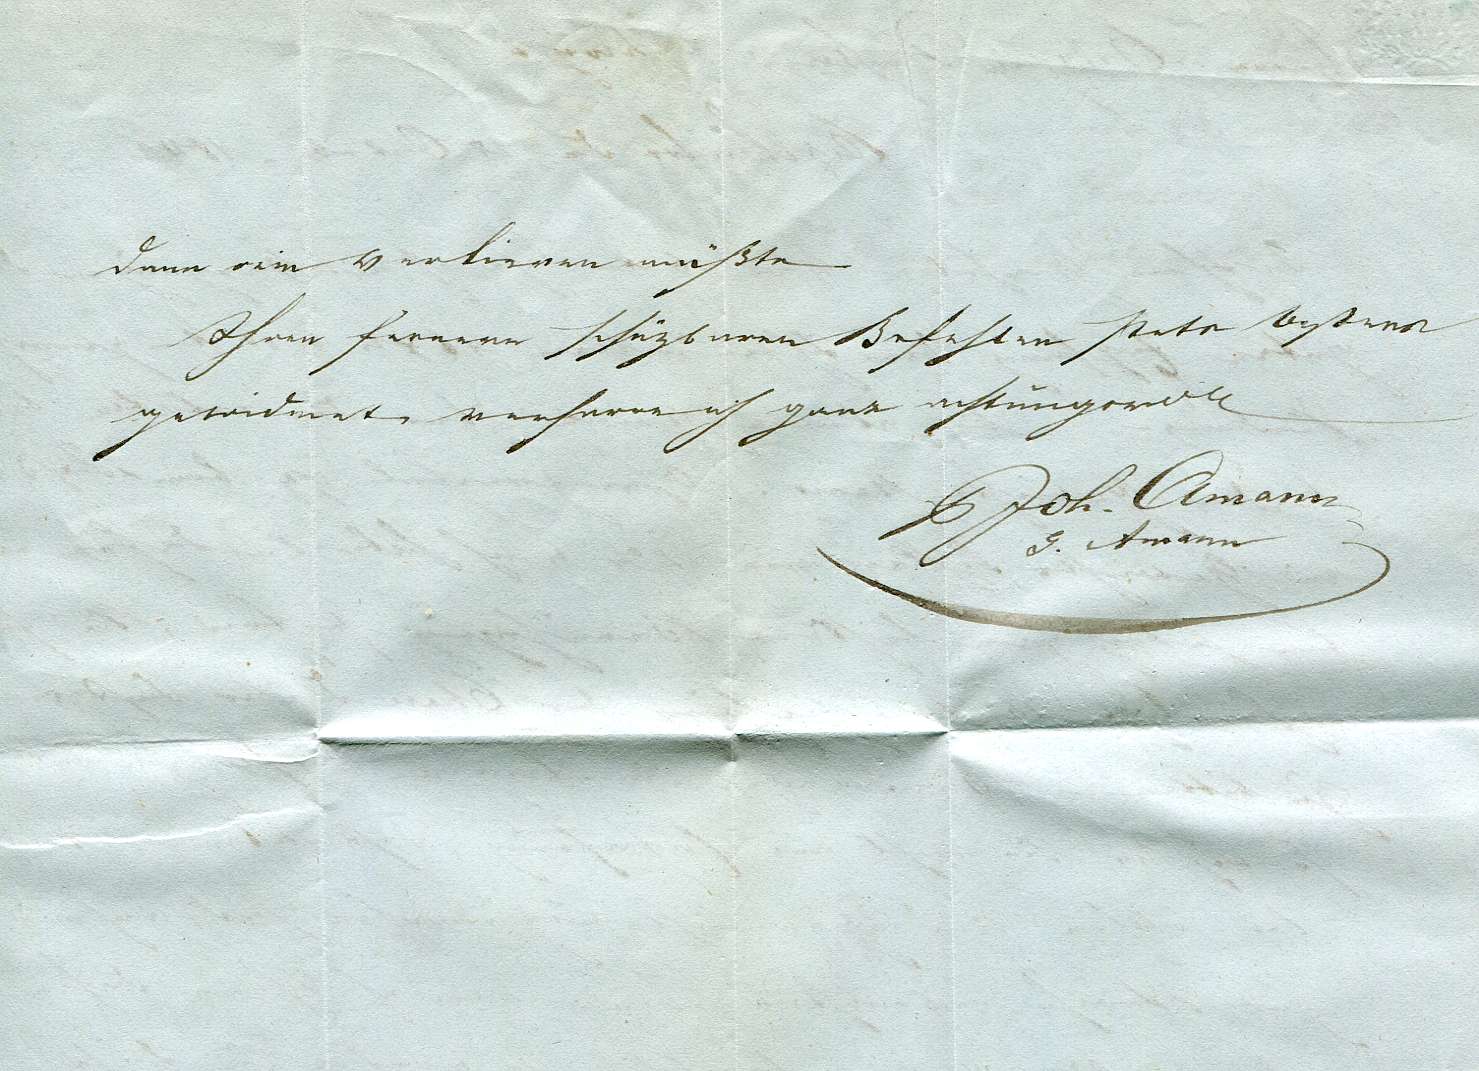 dann ein verlieren müßte
Ihren fernern schäzbaren Befehlen stets bestens
gewidmet, verharre ich ganz achtungsvoll
Joh. Amann
G. Amann